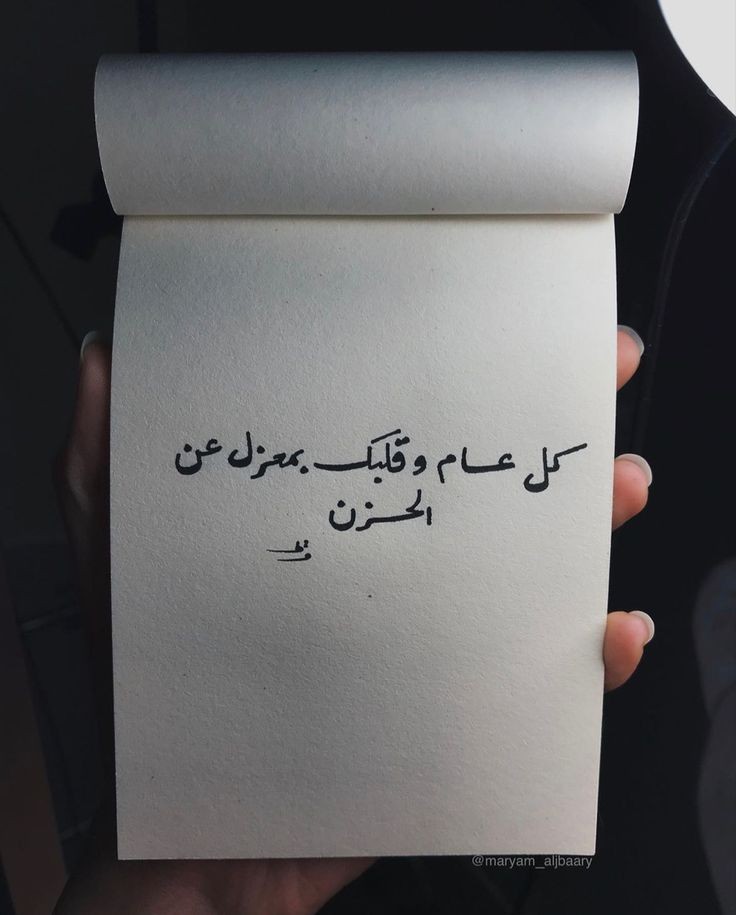 كل عام وقلبك بمعزل عن
الحزن
@maryam_aljbaary